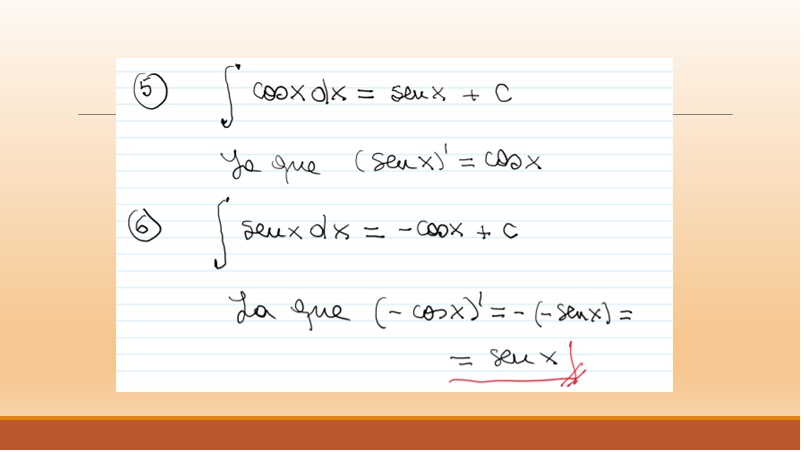 ⑤ ∫ cosx dx = senx + C
Ya que (senx)' = cosx
⑥ ∫ senx dx = -cosx + C
Ya que (-cosx)' = -(-senx) =
= senx